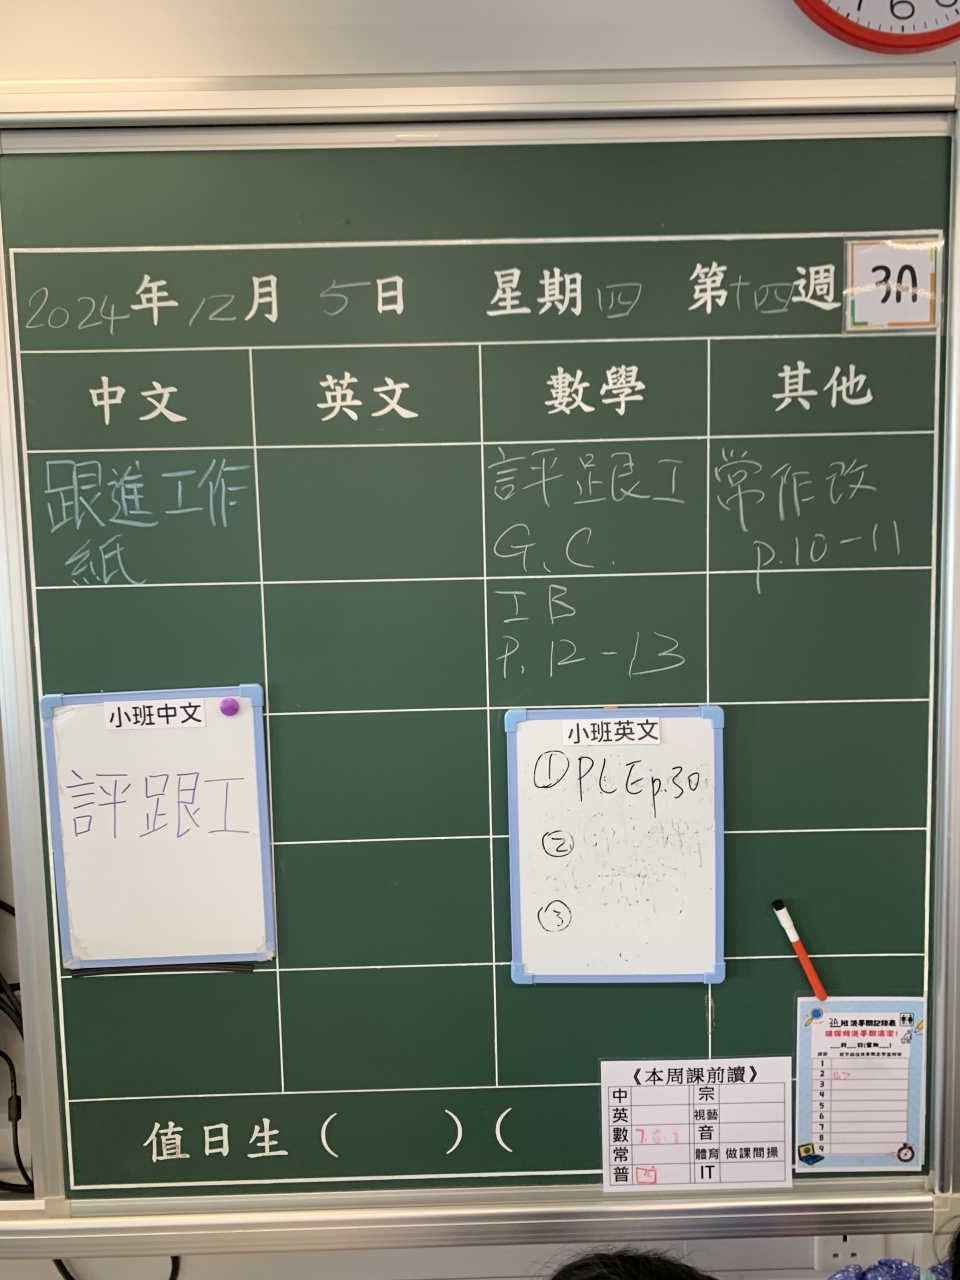 2024年12月5日 星期四 第十四週 3A
中文 英文 數學 其他
跟進工作
紙
評跟工
G.C.
IB
P.12-13
常作改
p.10-11
小班中文
評跟工
小班英文
① PLE p.30
②
③
值日生( )(
《本周課前讀》
中 宗
英 視藝
數 音
常 體育 做課間操
普 IT
1
2
3
4
5
6
7
8
9
6